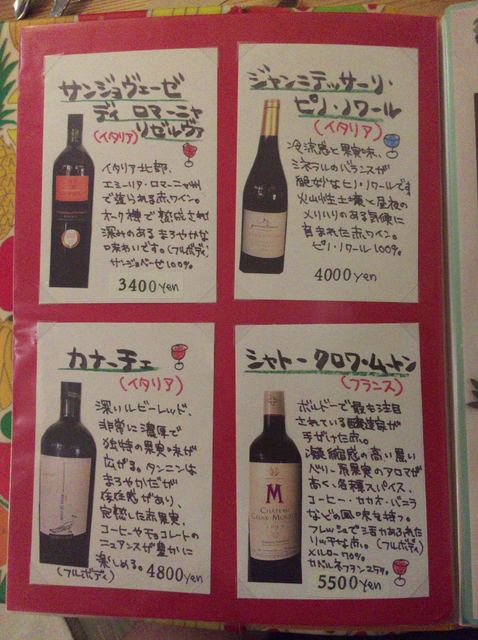 サンジョヴェーゼ
ディ ロマーニャ
リゼルヴァ
(イタリア)
イタリア北部、
エミーリア・ロマーニャ州
で造られる赤ワイン。
オーク樽で熟成され
深みのあるまろやかな
味わいです。(フルボディ)
サンジョベーゼ100%.
3400yen
ジャンニテッサーリ・
ピノ・ノワール
(イタリア)
冷涼感と果実味、
ミネラルのバランスが
絶妙なピノ・ノワールです
火山性土壌と昼夜の
メリハリのある気候に
育まれた赤ワイン。
ピノ・ノワール100%.
4000yen
カナーチェ
(イタリア)
深いルビーレッド、
非常に濃厚で
独特の果実味が
広がる。タンニンは
まろやかだが
存在感があり、
完熟した赤果実、
コーヒーやチョコレートの
ニュアンスが豊かに
楽しめる。
(フルボディ)
4800yen
シャトー・クロワ・ムートン
(フランス)
ボルドーで最も注目
されている醸造家が
手がけた赤。
凝縮感の高い黒い
ベリー系果実のアロマが
高く、各種スパイス、
コーヒー・カカオ・バニラ
などの風味を持つ。
フレッシュで活力あふれた
リッチな赤。(フルボディ)
メルロー70%
カベルネフラン25%.
5500yen
M
CHATEAU